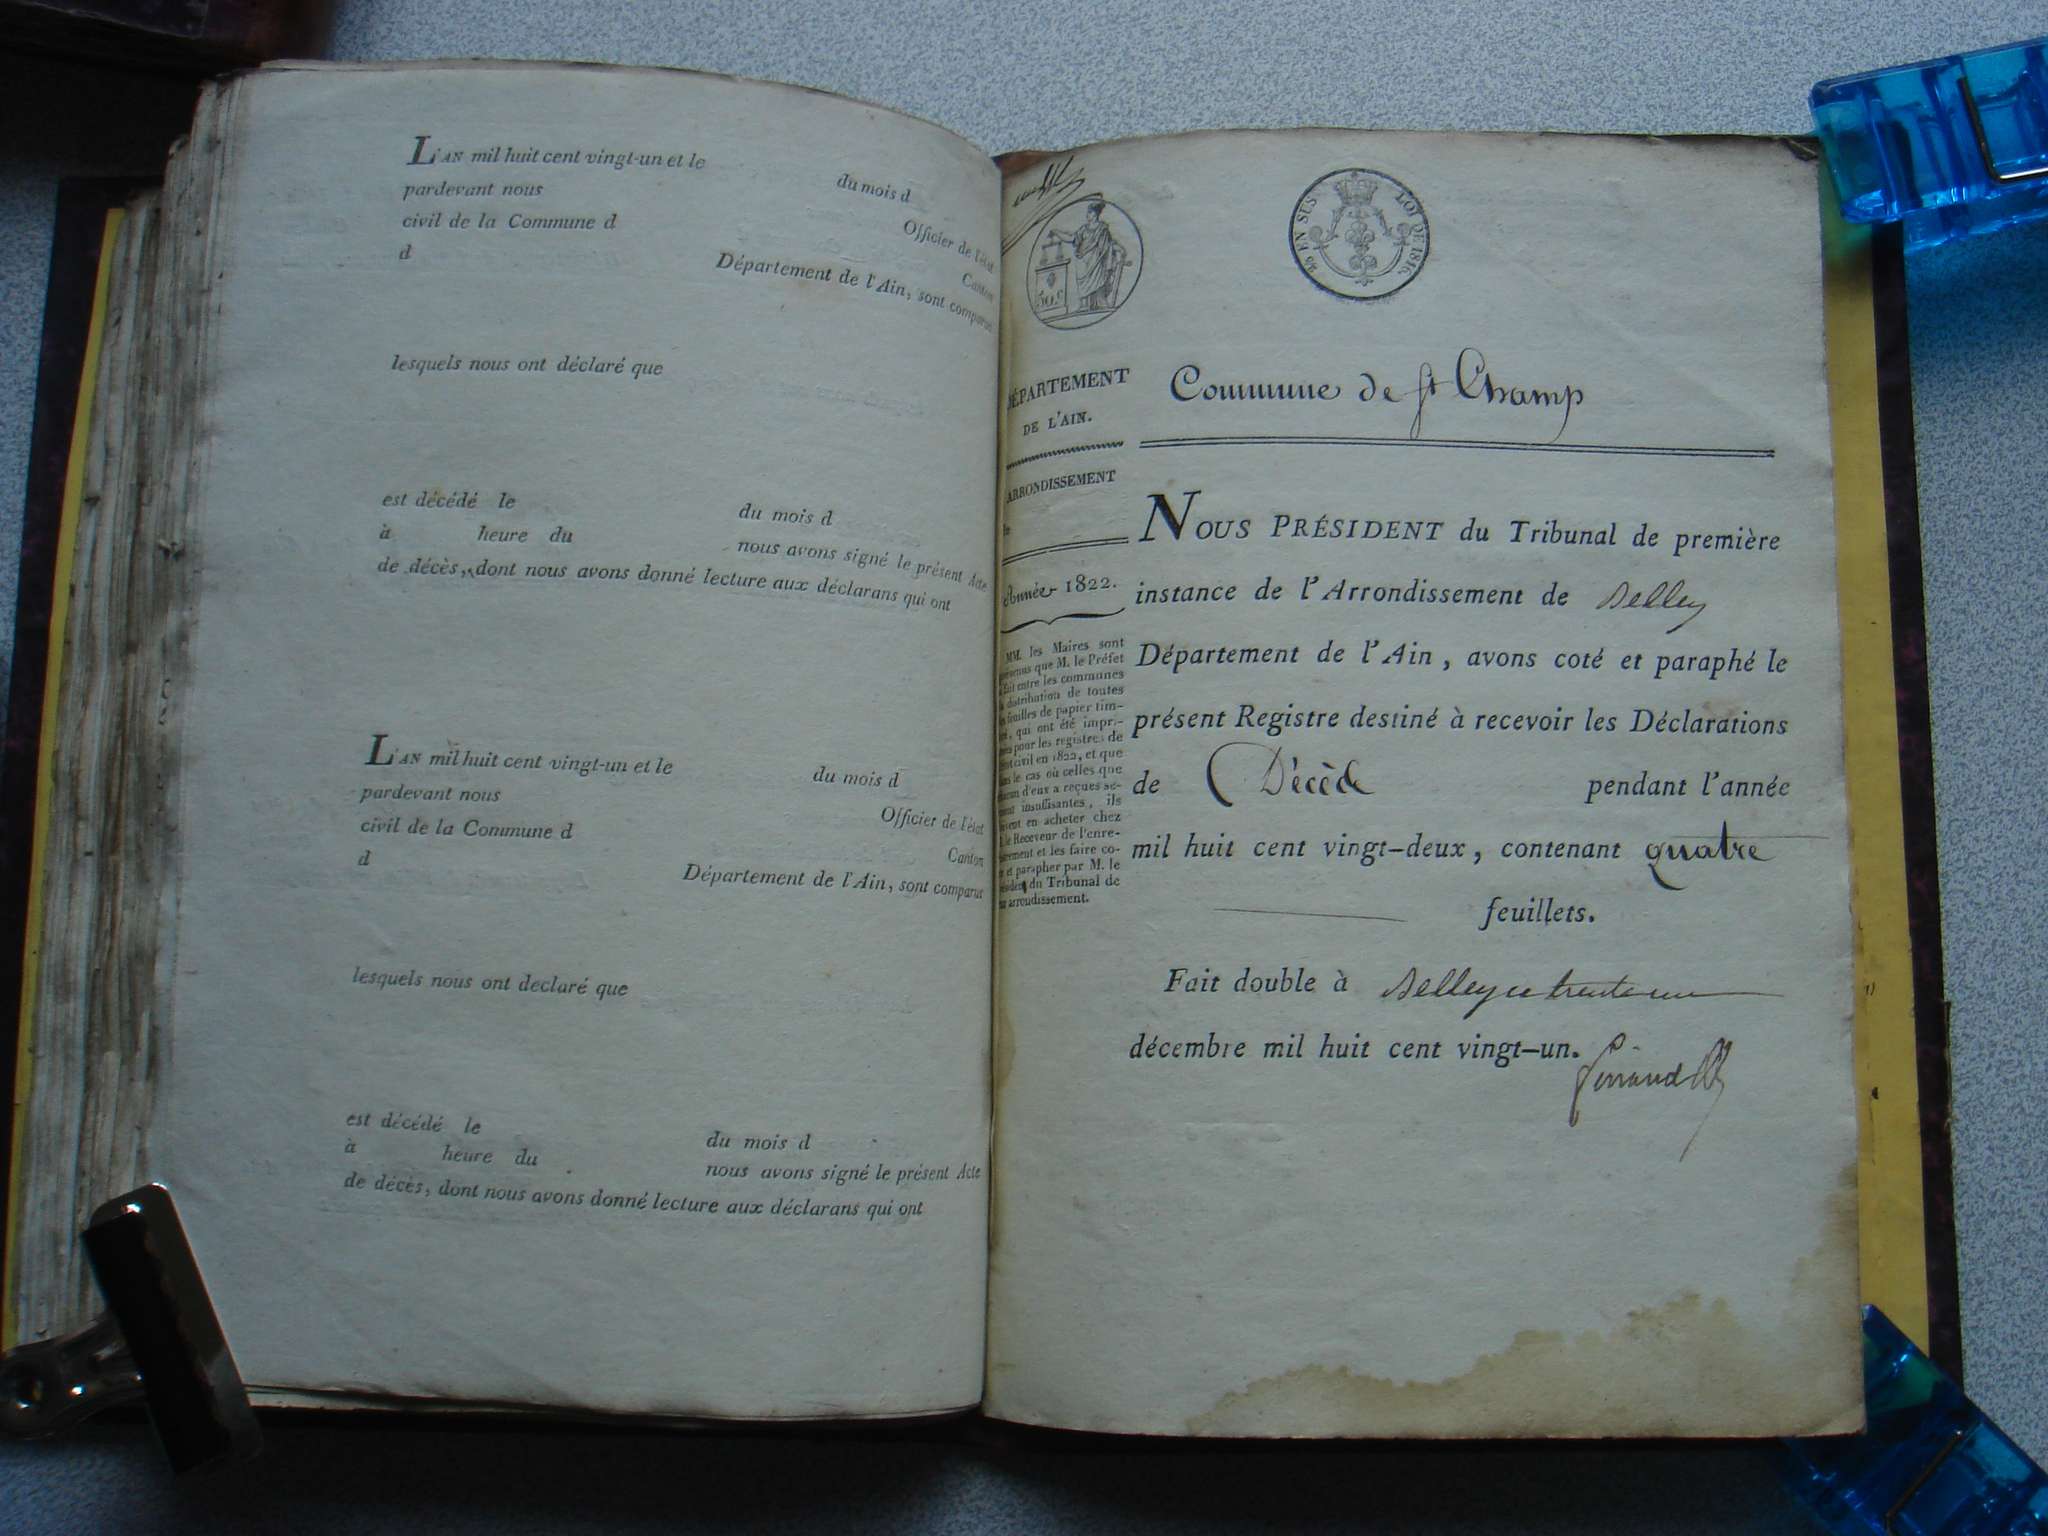 L'AN mil huit cent vingt-un et le du mois d
pardevant nous Officier de l'état
civil de la Commune d Canton
d Département de l'Ain, sont comparus
lesquels nous ont déclaré que
est décédé le du mois d
à heure du nous avons signé le présent Acte
de décès, dont nous avons donné lecture aux déclarans qui ont
L'AN mil huit cent vingt-un et le du mois d
pardevant nous Officier de l'état
civil de la Commune d Canton
d Département de l'Ain, sont comparus
lesquels nous ont declaré que
est décédé le du mois d
à heure du nous avons signé le présent Acte
de décès, dont nous avons donné lecture aux déclarans qui ont
50 c
EN SUS LOI DE 1816.
DÉPARTEMENT
DE L'AIN.
ARRONDISSEMENT
de
Année 1822.
MM. les Maires sont
prévenus que M. le Préfet
a fait entre les communes
la distribution de toutes
les feuilles de papier tim-
bré, qui ont été impri-
mées pour les registres de
l'état civil en 1822, et que
dans le cas où celles que
chacun d'eux a reçues se-
roient insuffisantes, ils
doivent en acheter chez
le Receveur de l'enre-
gistrement et les faire co-
ter et parapher par M. le
Président du Tribunal de
arrondissement.
Commune de St Champ
NOUS PRÉSIDENT du Tribunal de première
instance de l'Arrondissement de Belley
Département de l'Ain, avons coté et paraphé le
présent Registre destiné à recevoir les Déclarations
de Décède pendant l'année
mil huit cent vingt-deux, contenant quatre
feuillets.
Fait double à Belley ce trente un
décembre mil huit cent vingt-un.